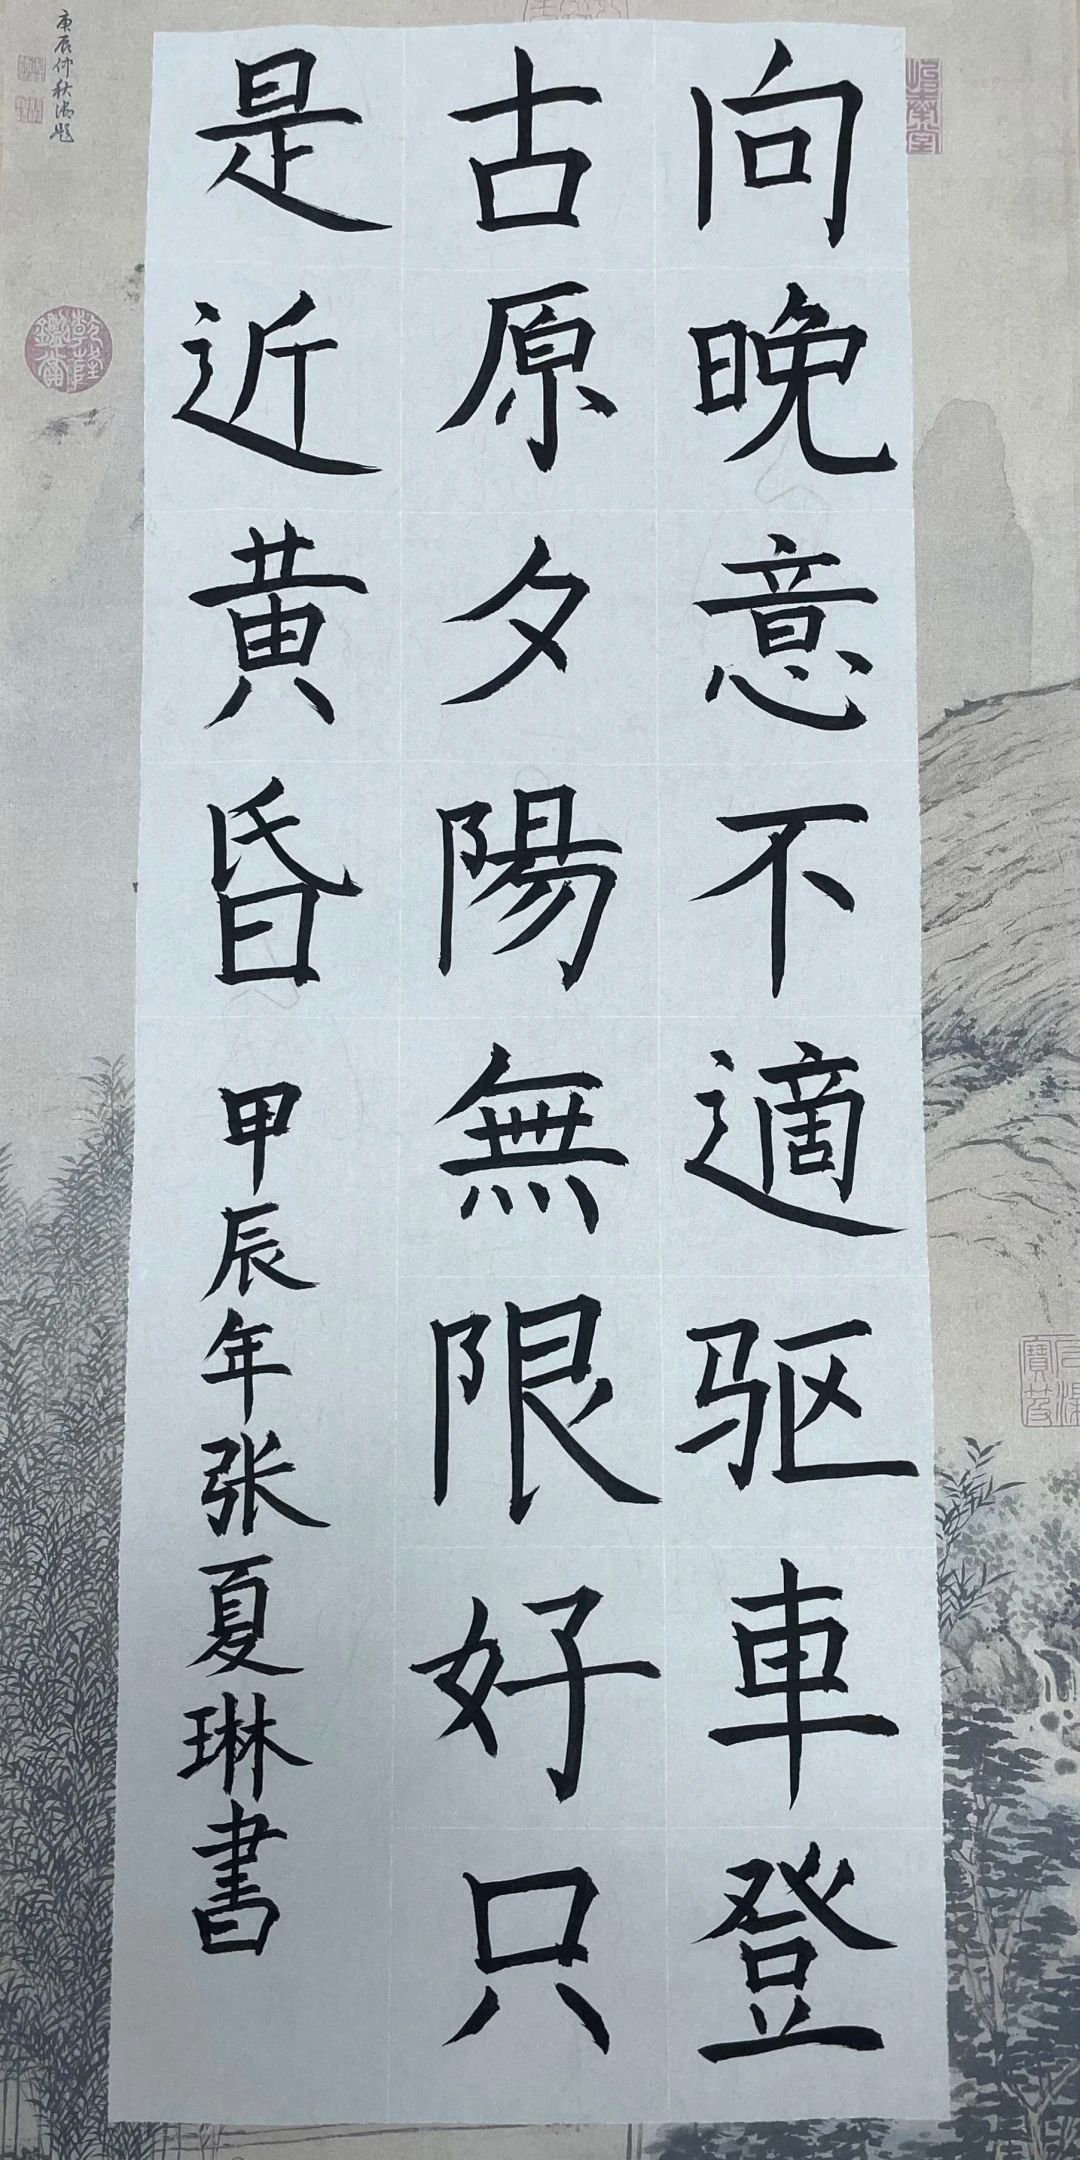 向晚意不適驱車登
古原夕陽無限好只
是近黄昏 甲辰年张夏琳書
庚辰仲秋御题
乾隆鑑賞